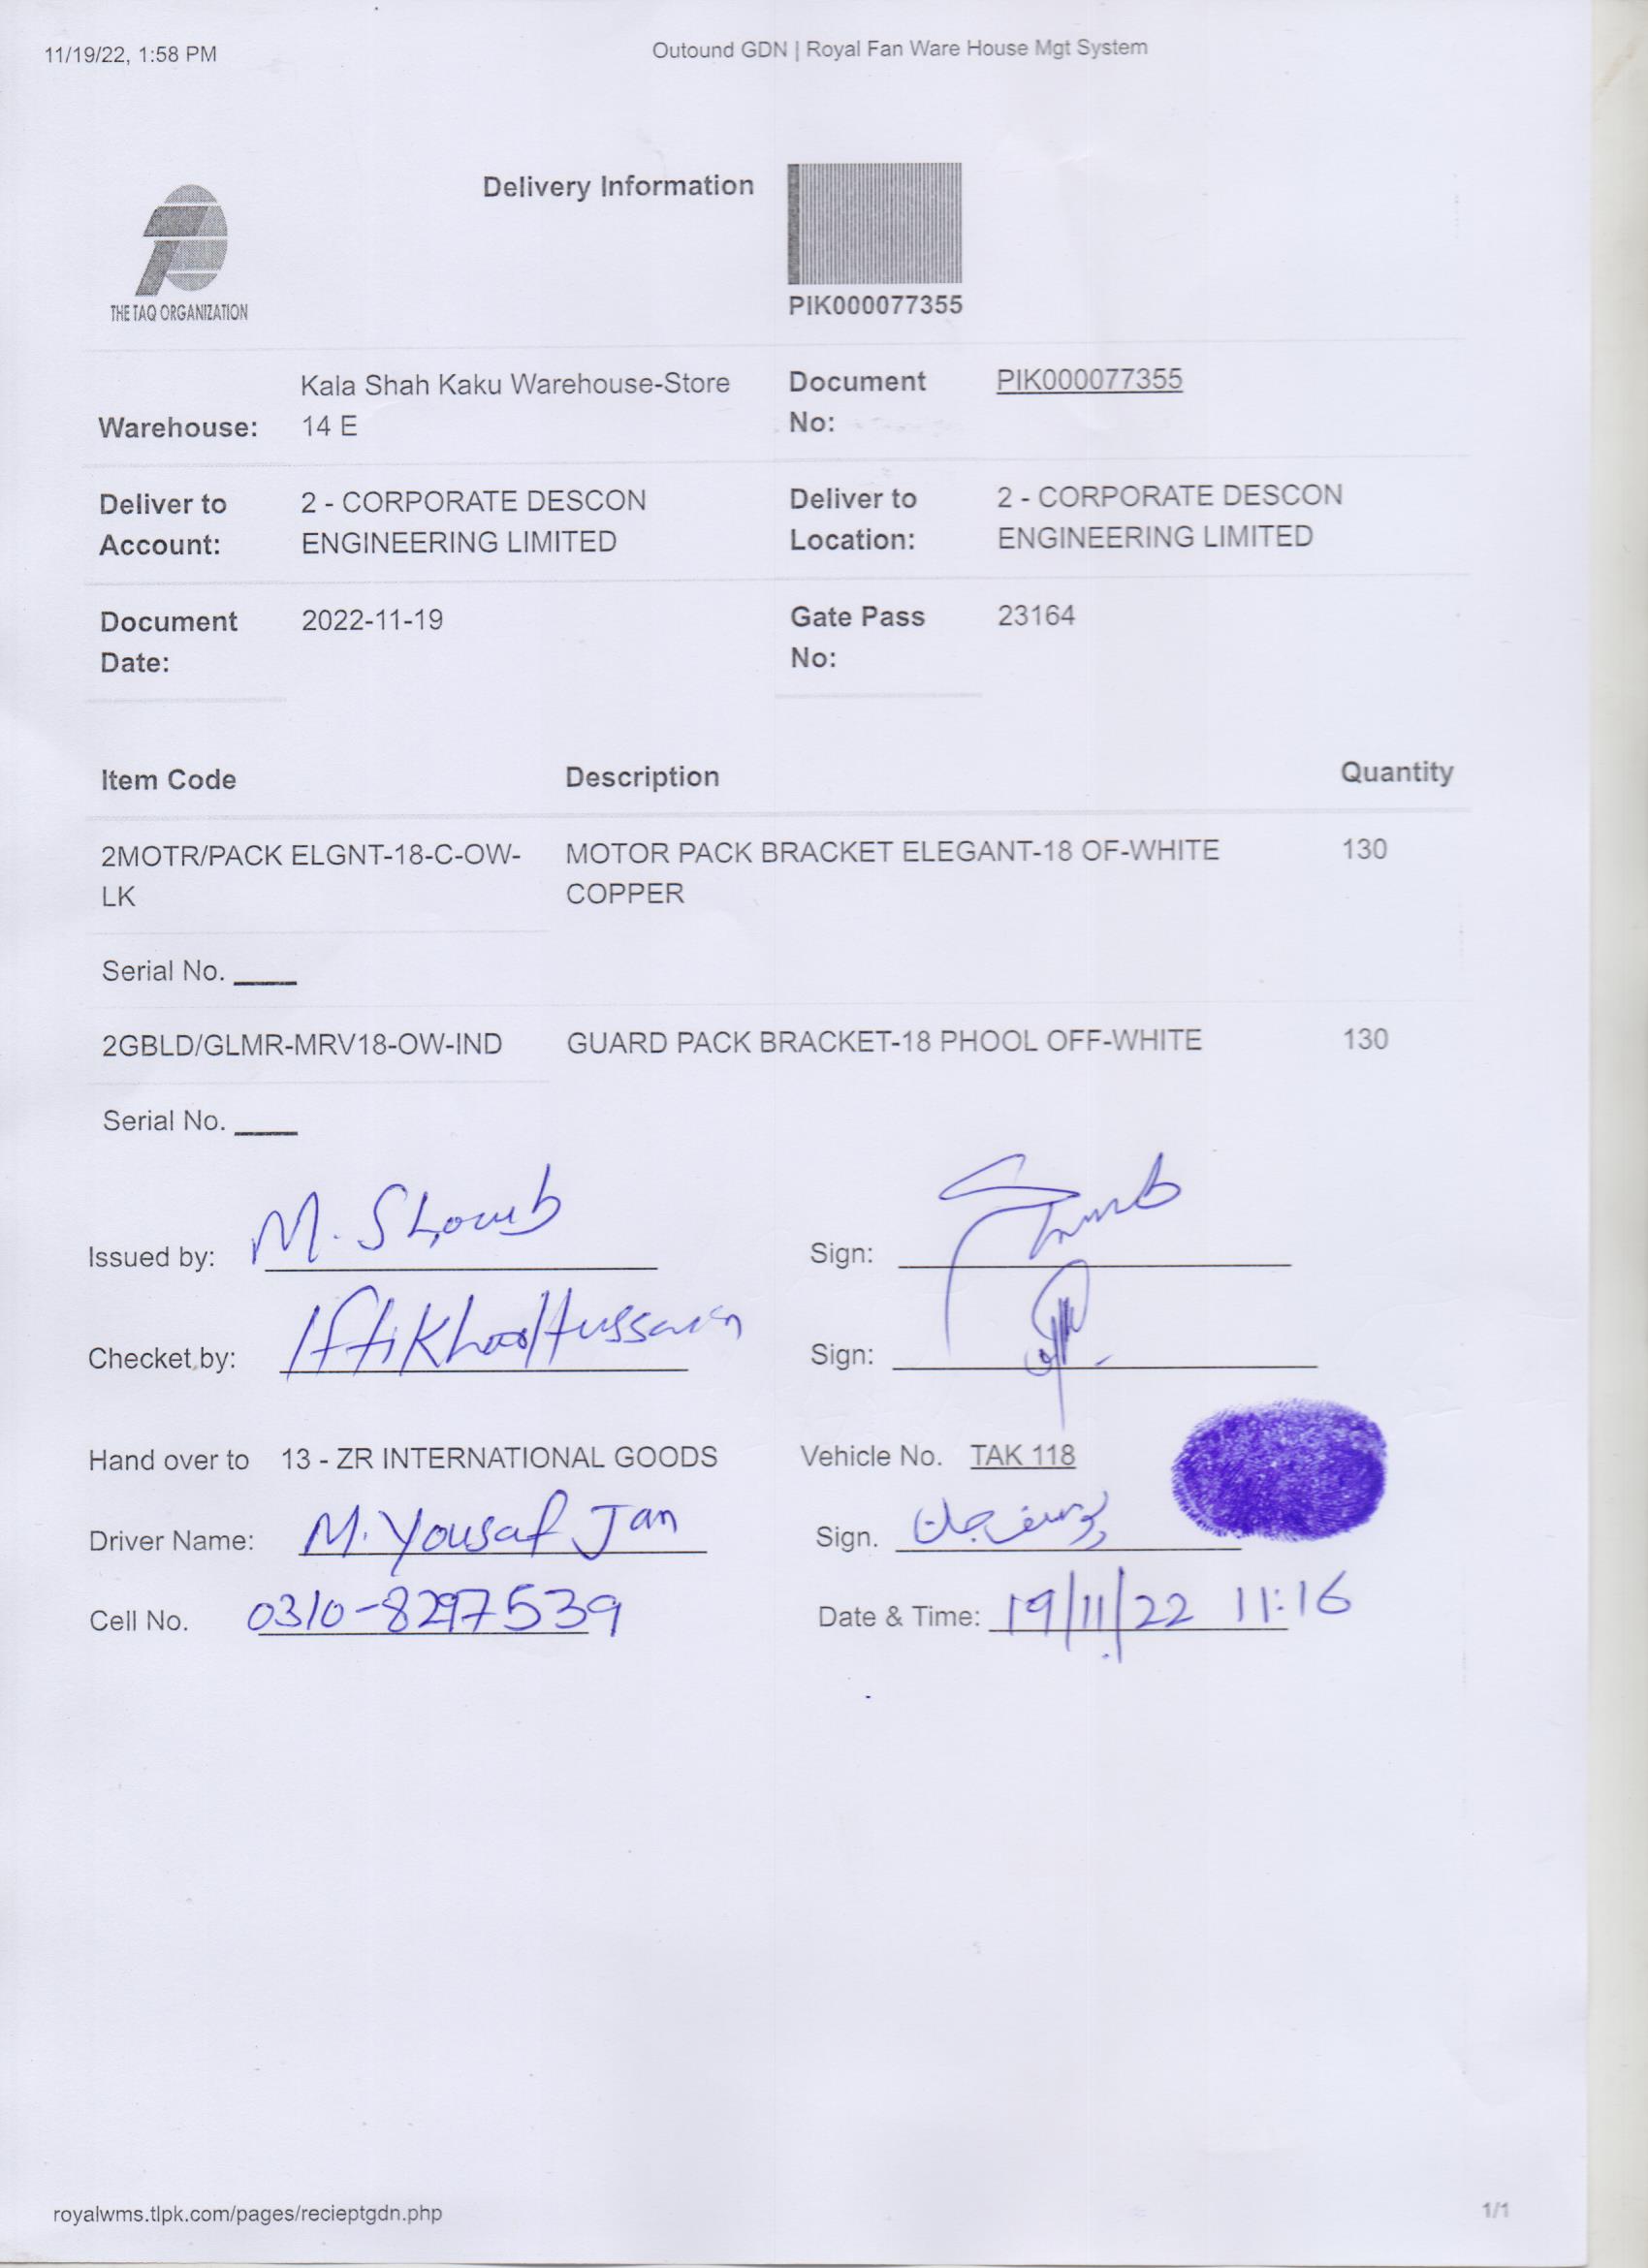 11/19/22, 1:58 PM
Outound GDN | Royal Fan Ware House Mgt System
Delivery Information
THE TAQ ORGANIZATION
PIK000077355
Warehouse: Kala Shah Kaku Warehouse-Store 14 E
Document No: PIK000077355
Deliver to Account: 2 - CORPORATE DESCON ENGINEERING LIMITED
Deliver to Location: 2 - CORPORATE DESCON ENGINEERING LIMITED
Document Date: 2022-11-19
Gate Pass No: 23164
Item Code Description Quantity
2MOTR/PACK ELGNT-18-C-OW-LK MOTOR PACK BRACKET ELEGANT-18 OF-WHITE COPPER 130
Serial No. ____
2GBLD/GLMR-MRV18-OW-IND GUARD PACK BRACKET-18 PHOOL OFF-WHITE 130
Serial No. ____
Issued by: M. Sign:
Checket by: Iftikhar Hussain Sign:
Hand over to 13 - ZR INTERNATIONAL GOODS Vehicle No. TAK 118
Driver Name: M. Yousaf Jan Sign. یوسف جان
Cell No. 0310-8297539 Date & Time: 19/11/22 11:16
royalwms.tlpk.com/pages/recieptgdn.php
1/1